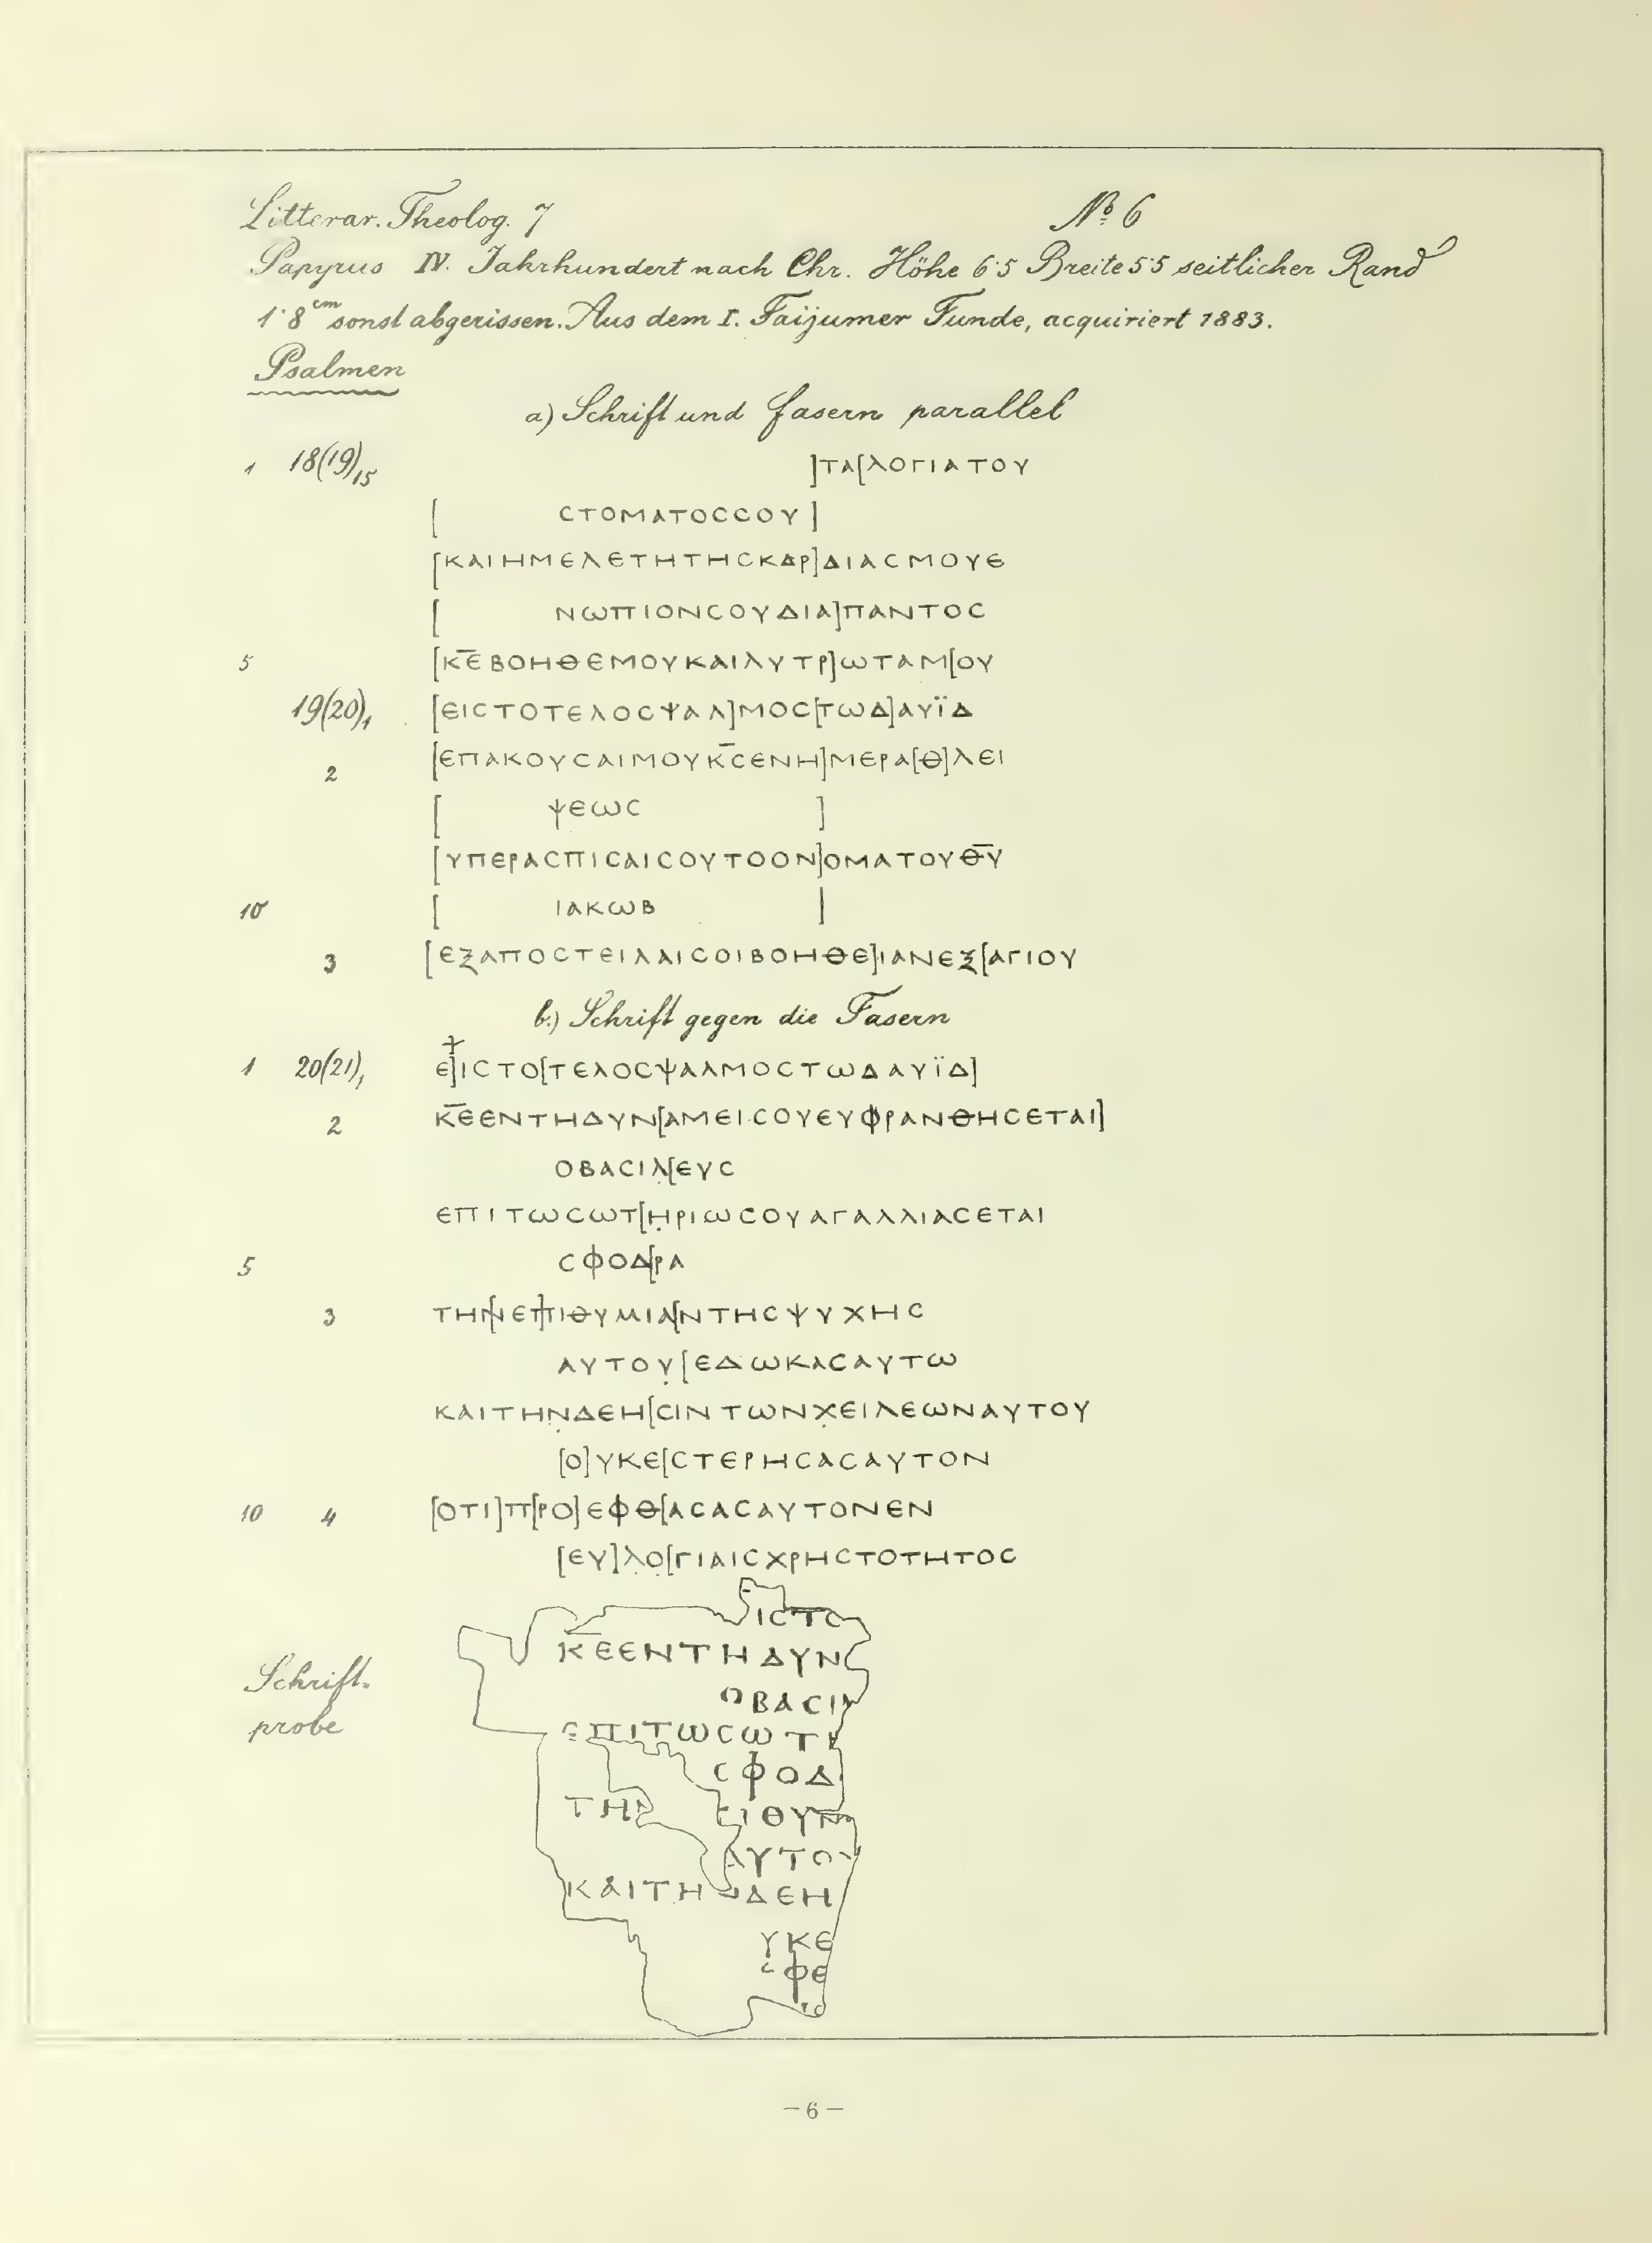 Litterar. Theolog. 7 № 6
Papyrus IV. Jahrhundert nach Chr. Höhe 6·5 Breite 5·5 seitlicher Rand
1·8 cm sonst abgerissen. Aus dem I. Faijumer Funde, acquiriert 1883.
Psalmen
a) Schrift und Fasern parallel
1 18(19)15 ]ΤΑ[ΛΟΓΙΑΤΟΥ
[ ϹΤΟΜΑΤΟϹϹΟΥ]
[ΚΑΙΗΜΕΛΕΤΗΤΗϹΚΑΡ]ΔΙΑϹΜΟΥΕ
[ ΝΩΠΙΟΝϹΟΥΔΙΑ]ΠΑΝΤΟϹ
5 [Κ̅Ε̅ΒΟΗΘΕΜΟΥΚΑΙΛΥΤΡ]ΩΤΑΜ[ΟΥ
19(20)1 [ΕΙϹΤΟΤΕΛΟϹΨΑΛ]ΜΟϹ[ΤΩΔ]ΑΥΪΔ
2 [ΕΠΑΚΟΥϹΑΙΜΟΥΚ̅Ϲ̅ΕΝΗ]ΜΕΡΑ[Θ]ΛΕΙ
[ ΨΕΩϹ ]
[ΥΠΕΡΑϹΠΙϹΑΙϹΟΥΤΟΟΝ]ΟΜΑΤΟΥΘ̅Υ̅
10 [ ΙΑΚΩΒ ]
3 [ΕΞΑΠΟϹΤΕΙΛΑΙϹΟΙΒΟΗΘΕ]ΙΑΝΕΞ[ΑΓΙΟΥ
b.) Schrift gegen die Fasern
+
1 20(21)1 Ε]ΙϹΤΟ[ΤΕΛΟϹΨΑΛΜΟϹΤΩΔΑΥΪΔ]
2 Κ̅Ε̅ΕΝΤΗΔΥΝ[ΑΜΕΙϹΟΥΕΥΦΡΑΝΘΗϹΕΤΑΙ]
ΟΒΑϹΙΛ̣[ΕΥϹ
ΕΠΙΤΩϹΩΤ[Η̣ΡΙΩϹΟΥΑΓΑΛΛΙΑϹΕΤΑΙ
5 ϹΦΟΔ[ΡΑ
3 ΤΗ[Ν]ΕΠ]ΙΘΥΜΙΑ[ΝΤΗϹΨΥΧΗϹ
ΑΥΤΟΥ̣[ΕΔΩΚΑϹΑΥΤΩ
ΚΑΙΤΗΝ̣ΔΕΗ[ϹΙΝΤΩΝΧΕΙΛΕΩΝΑΥΤΟΥ
[Ο]ΥΚΕ[ϹΤΕΡΗϹΑϹΑΥΤΟΝ
10 4 [ΟΤΙ]Π[ΡΟ]ΕΦΘ[ΑϹΑϹΑΥΤΟΝΕΝ
[ΕΥ]Λ̣Ο̣[ΓΙΑΙϹΧΡΗϹΤΟΤΗΤΟϹ
Schrift-
probe
ΙϹΤΟ
Κ̅Ε̅ΕΝΤΗΔΥΝ
ΟΒΑϹΙΛ
ΕΠΙΤΩϹΩΤ
ϹΦΟΔ
ΤΗΝ ΙΘΥΜ
ΑΥΤΟΥ
ΚΑΙΤΗΝΔΕΗ
ΥΚΕ
ΦΘ
–6–